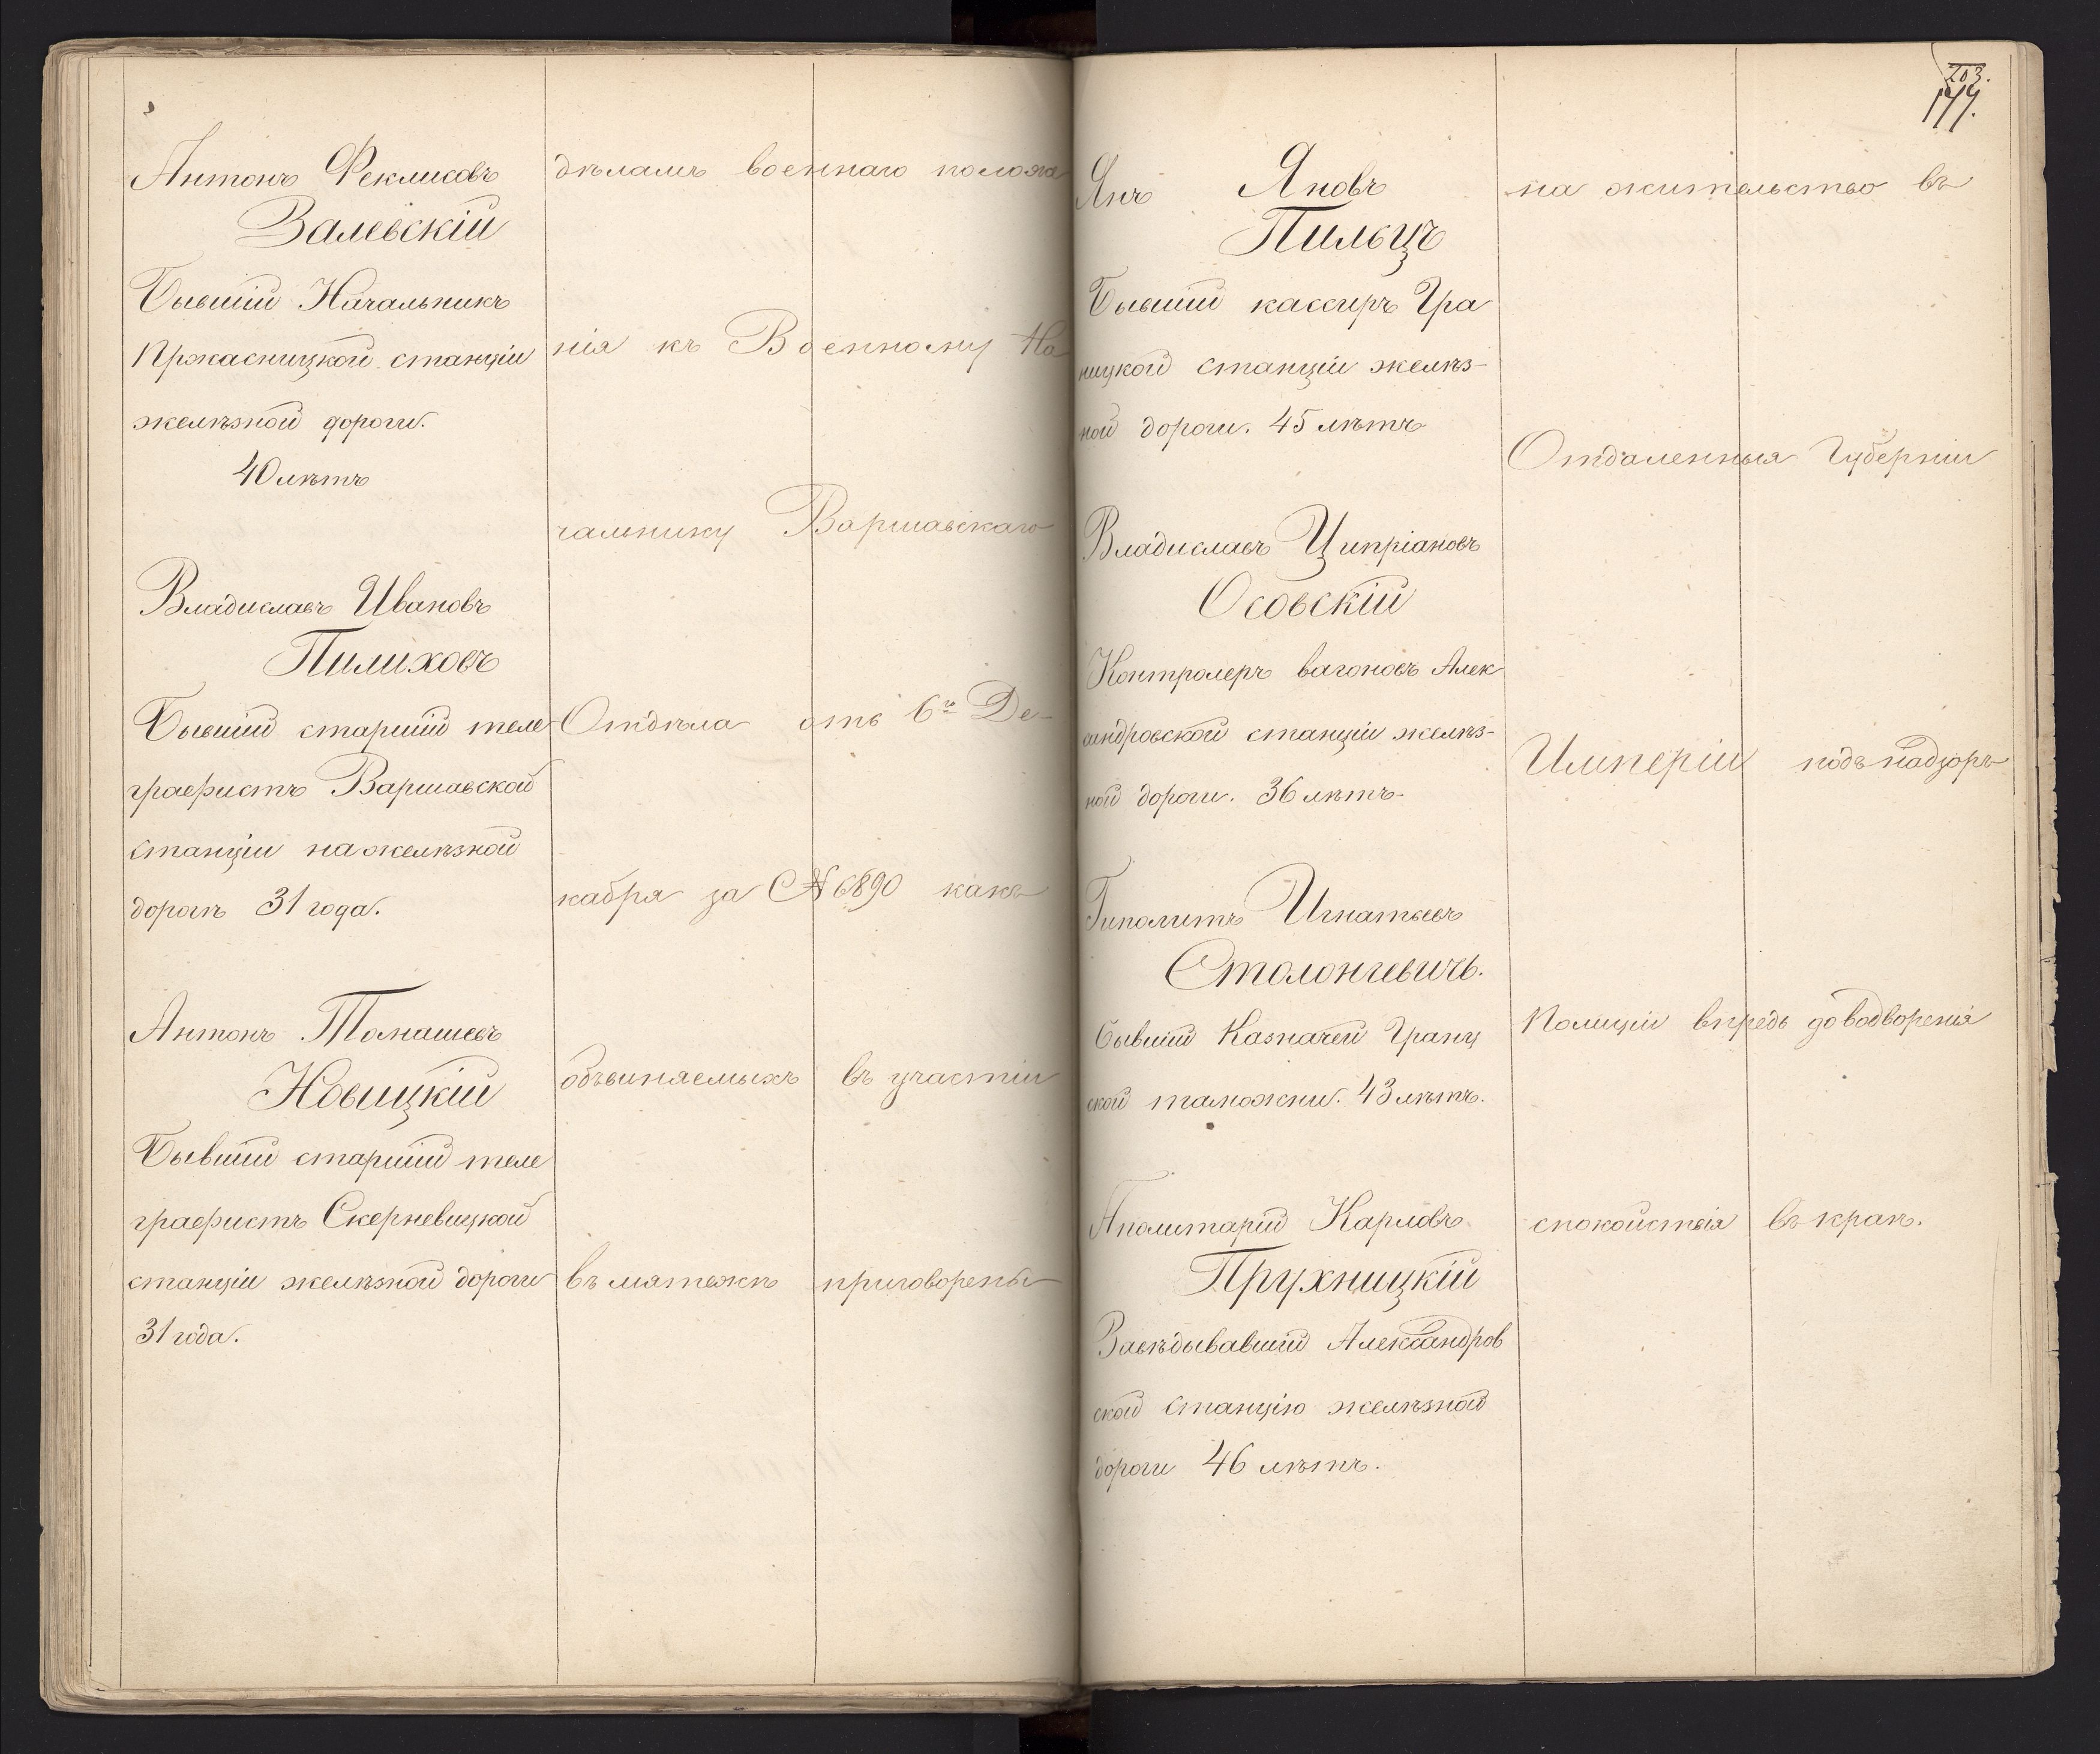 Антонъ Феликсовъ
Залевскій
Бывшій Начальникъ
Пржасницкой станціи
желѣзной дороги.
40 лѣтъ
Владиславъ Ивановъ
Пилиховъ
Бывшій старшій теле
графистъ Варшавской
станціи на желѣзной
дорогѣ 31 года.
Антонъ Томашевъ
Новицкій
Бывшій старшій теле
графистъ Скерневицкой
станціи желѣзной дороги
31 года.
дѣламъ военнаго положе
нія къ Военному На
чальнику Варшавскаго
Отдѣла отъ 6го Де-
кабря за № 6890 какъ
обвиняемыхъ въ участіи
въ мятежѣ приговорены
203.
177.
Янъ Яновъ
Пильцъ
Бывшій кассиръ Гра
ницкой станціи желѣз-
ной дороги. 45 лѣтъ
Владиславъ Ципріановъ
Осовскій
Контролеръ вагоновъ Алек
сандровской станціи желѣз-
ной дороги. 36 лѣтъ.
Гиполитъ Игнатьевъ
Столонгевичъ.
бывшій Казначей Границ
ской таможни. 43 лѣтъ.
Аполитарій Карловъ
Прухницкій
Завѣдывавшій Александров
ской станцію желѣзной
дороги 46 лѣтъ.
на жительство въ
Отдаленныя Губерніи
Имперіи подъ надзоръ
Полиціи впредь до водворенія
спокойствія въ краѣ.